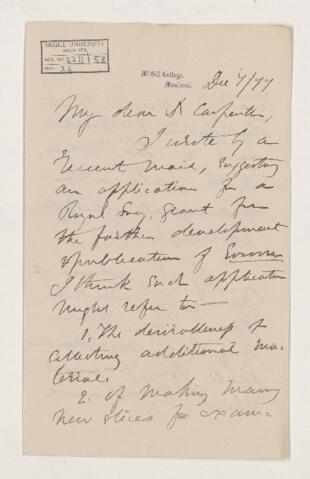 McGILL UNIVERSITY
ARCHIVES
ACC. NO. 2211 / 58
REF. 22
McGill College,
Montreal.
Dec 7/77
My dear Dr Carpenter,
I wrote by a
recent mail, suggesting
an application for a
Royal Socy. grant for
the further development
& publication of Eozoon
I think such application
might refer to —
1. The desirableness of
collecting additional ma-
terial.
2. Of making many
new slices for exam-